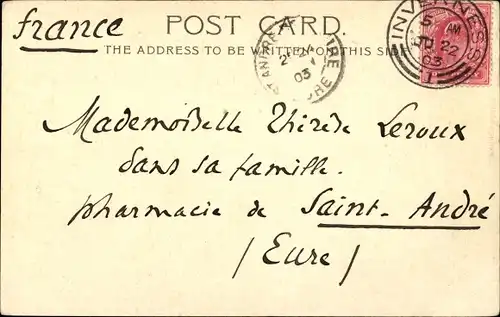 france
POST CARD.
THE ADDRESS TO BE WRITTEN ON THIS SIDE
INVERNESS
5 AM
22
03
1
03
Mademoiselle Thérèse Leroux
dans sa famille.
pharmacie de Saint-André
(Eure)